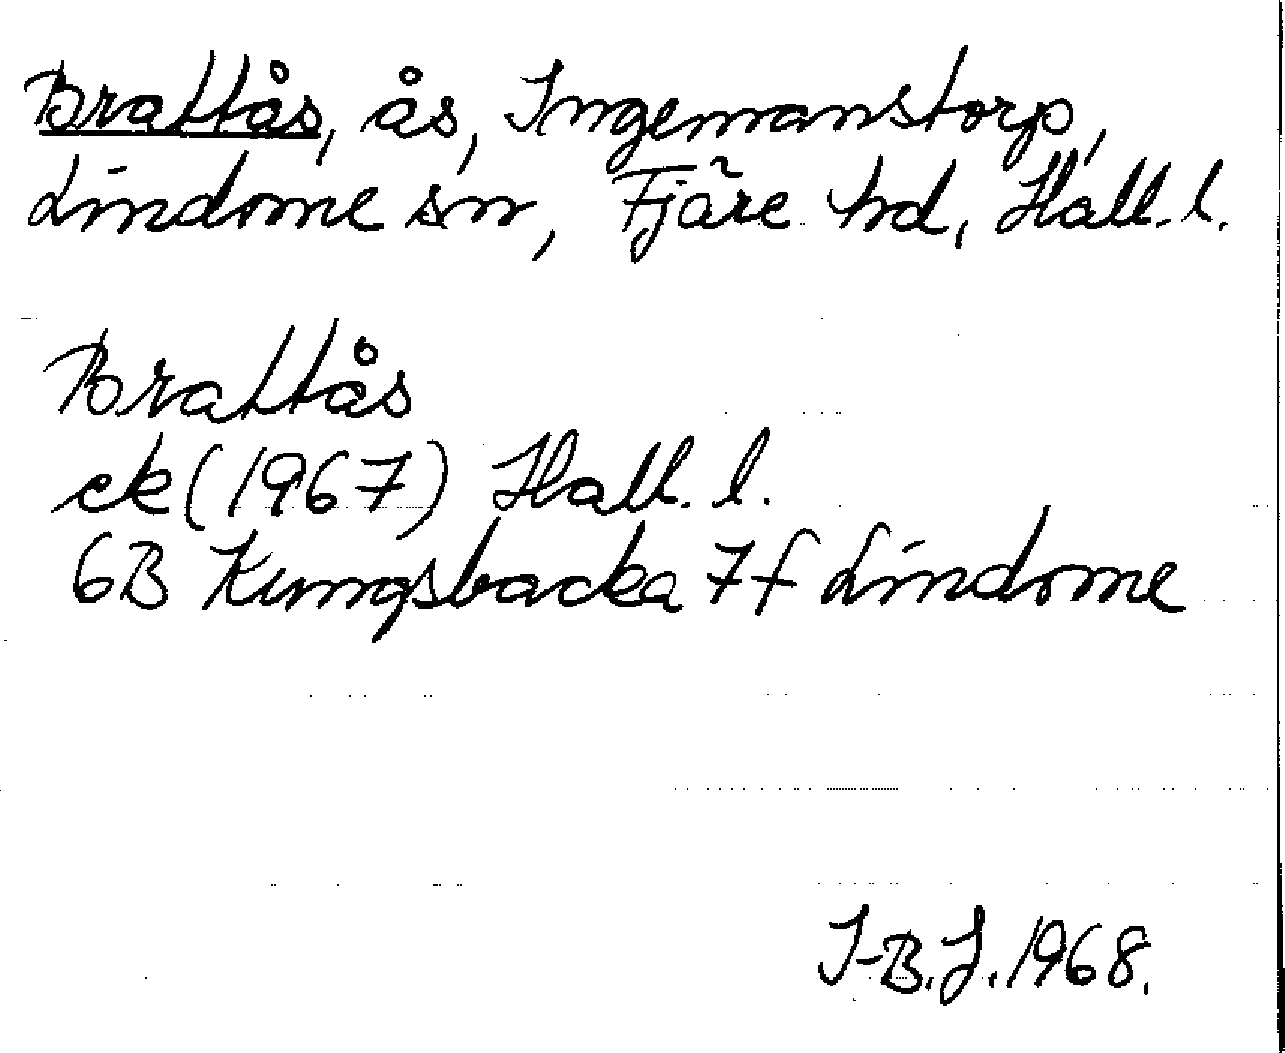 Brattås, ås, Ingemanstorp,
Lindome sn, Fjäre hd, Hall. l.
Brattås
ek (1967) Hall. l.
6B Kungsbacka 7f Lindome
I-B. J. 1968.